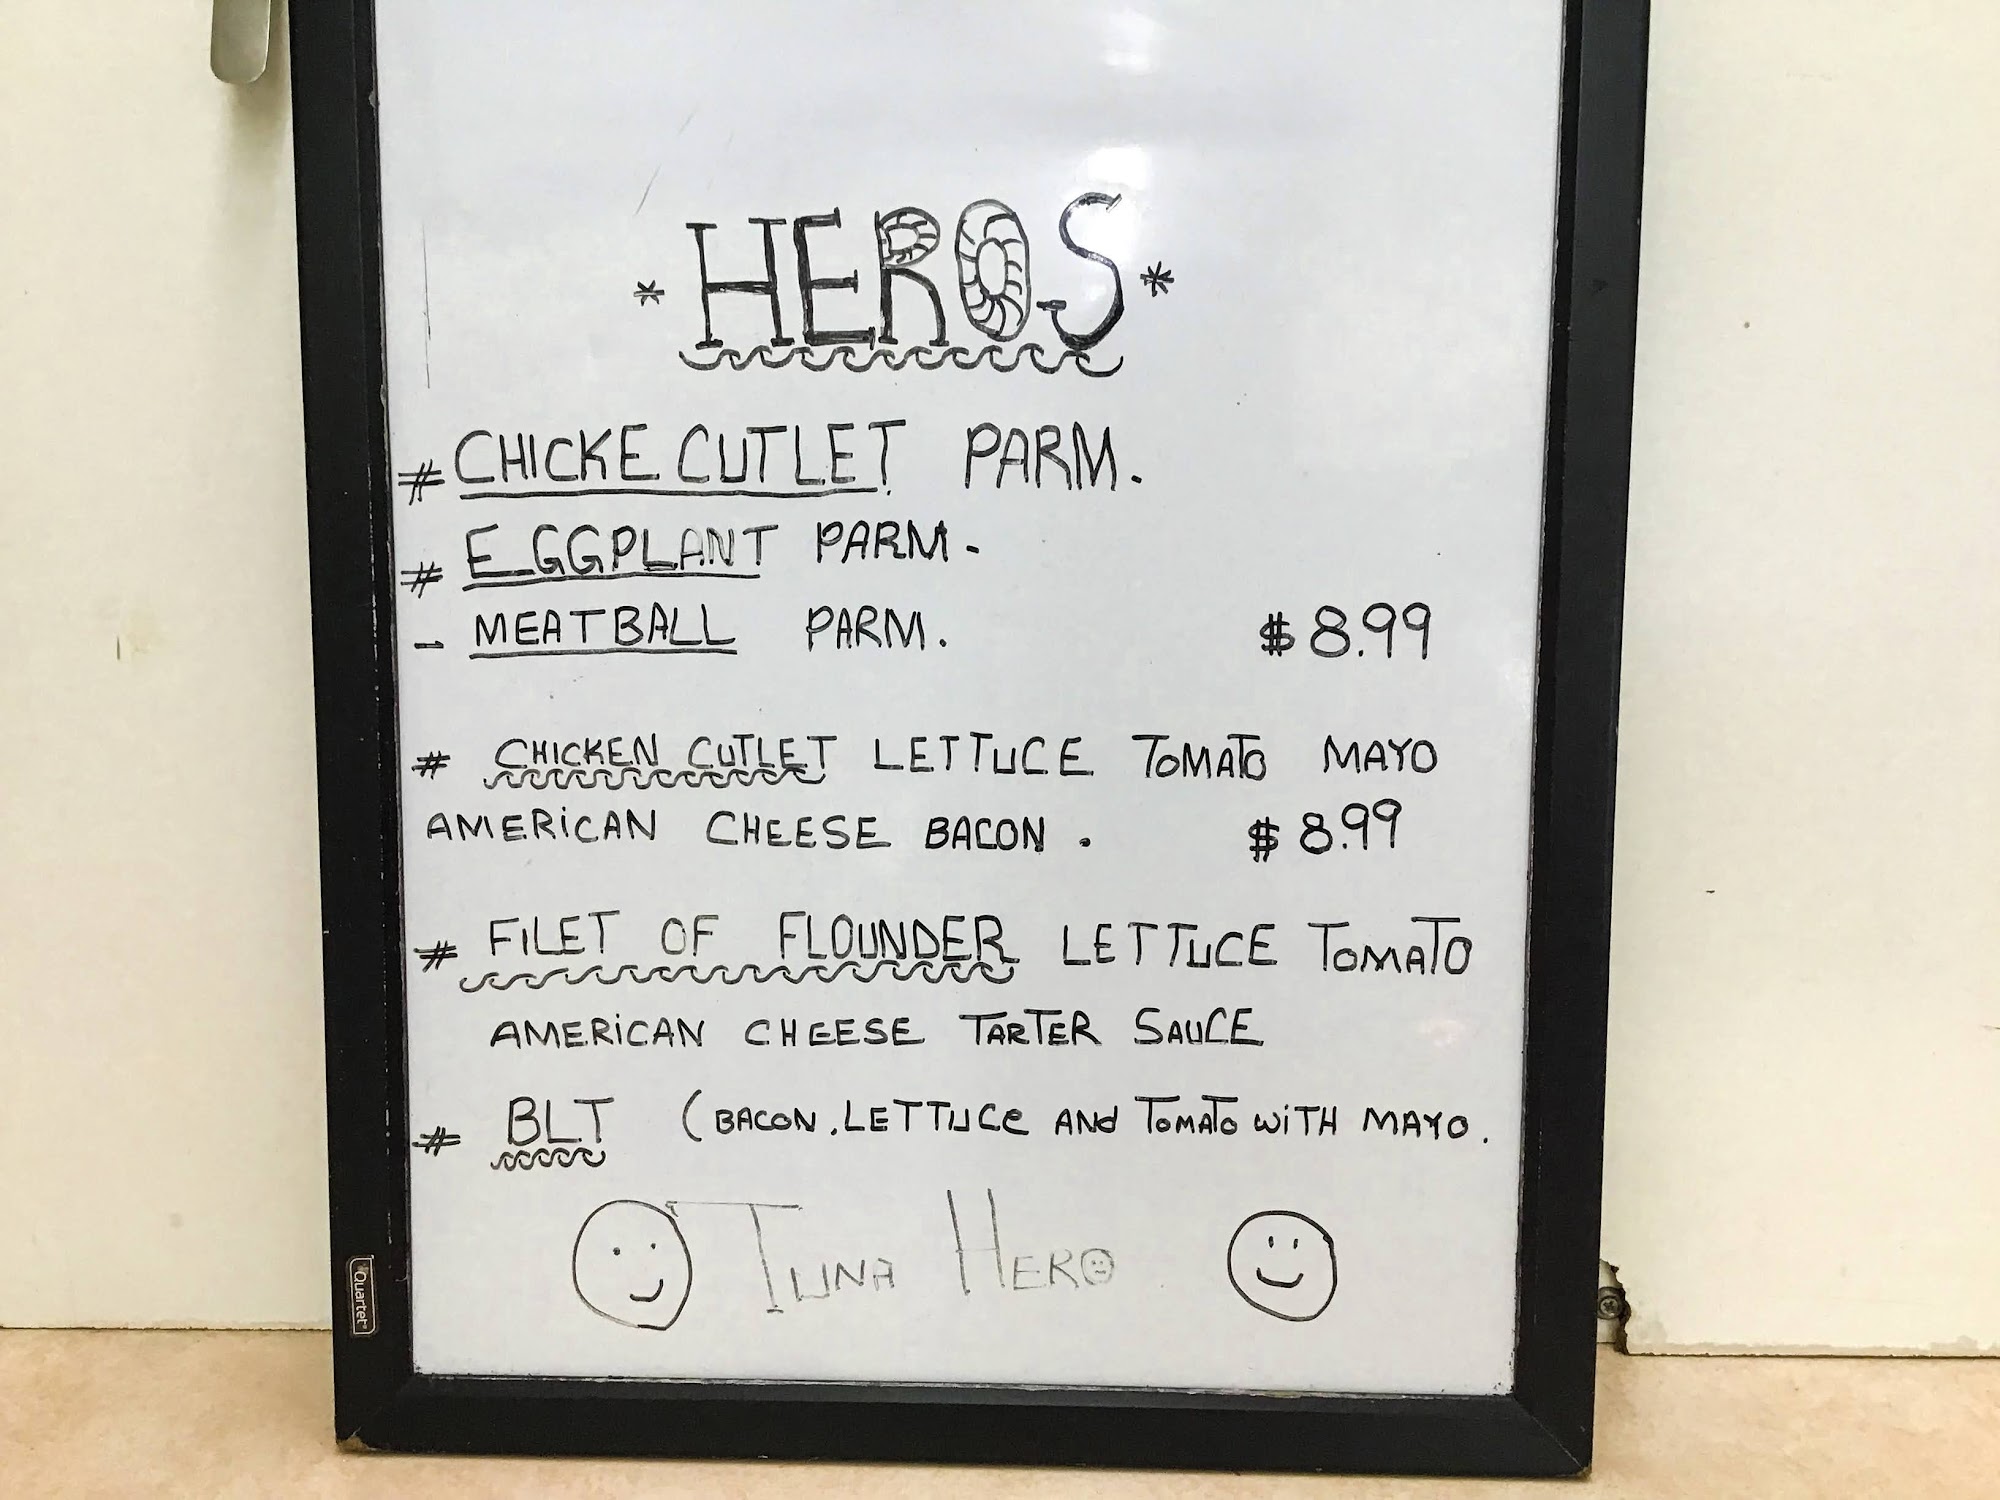 * HEROS *
# CHICKE CUTLET PARM.
# EGGPLANT PARM-
- MEATBALL PARM. $8.99
# CHICKEN CUTLET LETTUCE TOMATO MAYO
AMERICAN CHEESE BACON. $8.99
# FILET OF FLOUNDER LETTUCE TOMATO
AMERICAN CHEESE TARTER SAUCE
# BLT (BACON, LETTUCE AND TOMATO WITH MAYO.
TUNA HERO
Quartet